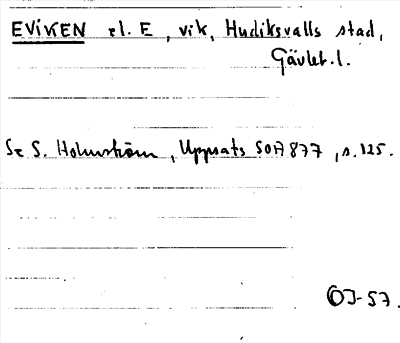 EVIKEN rl. E, vik, Hudiksvalls stad,
Gävleb.l.
Se S. Holmström, Uppsats SOA 877, s. 125.
OJ-57.